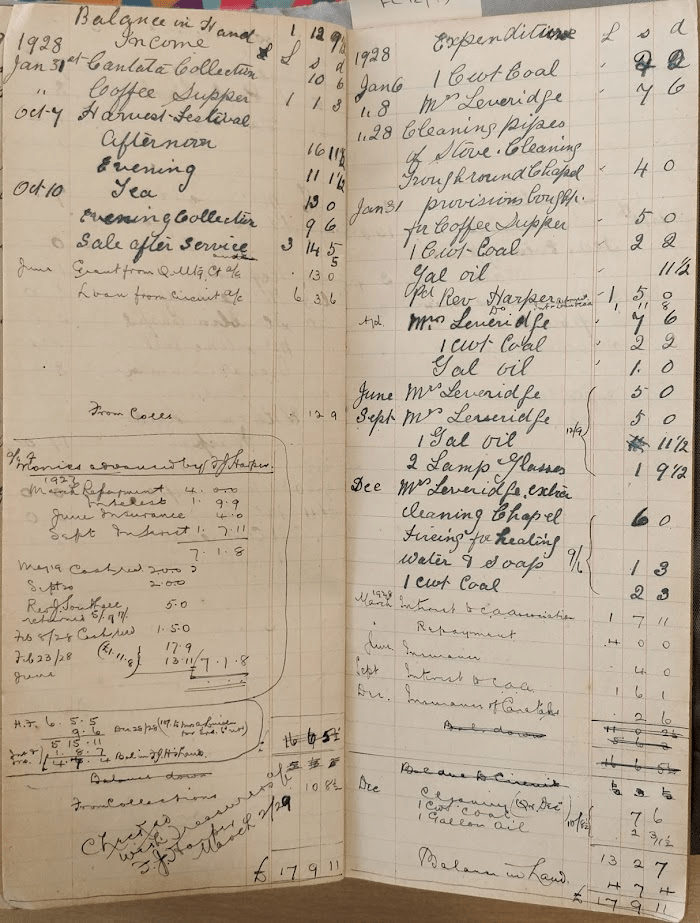 Balance in Hand 1 12 9½
1928 Income £ s d
Jan 31st Cantata Collection 10 6
" Coffee Supper 1 1 3
Oct 7 Harvest Festival
Afternoon 16 11½
Evening 11 1½
Oct 10 Tea 13 0
Evening Collection 9 6
Sale after Service 3 14 5
June Grant from Q. Mtg. Ct a/c . 13 0
Loan from Circuit a/c 6 3 6
From Colls . 12 9
Monies advanced by F J Harper
March Repayment 4.0.0
Interest 1.9.9
June Insurance 4.0
Sept Interest 1.7.11
7.1.8
Cash red 2.0.0
Sept 20 2.0.0
Rev J. Southee 5.0
returned
Feb 8/28 Cash red 1.5.0
Feb 23/28 (£1.11.8) 17.9
June 13.11 7.1.8
H.F. 6.5.5
9.6 Dec 28/28
5 15.11
1.8.7
4.7.4 Bal in F J H's hand
£ 16 6 5½
Balance down
From Collections 10 8½
Checked
with Treasurers a/c
F. J. Harper
March 2/29
£ 17 9 11
1928 Expenditure £ s d
Jan 6 1 Cwt Coal " 2 2
" 8 Mrs Leveridge " 7 6
" 28 Cleaning Pipes
of Stove. Cleaning
Trough round Chapel " 4 0
Jan 31 provisions bought
for Coffee Supper " 5 0
1 Cwt Coal " 2 2
Gal oil 11½
Pd Rev Harper 1 5 0
1 11 8
Mrs Leveridge " 7 6
1 cwt Coal " 2 2
Gal oil 1. 0
June Mrs Leveridge 5 0
Sept Mrs Leveridge 5 0
1 Gal oil 12/9 11½
2 Lamp Glasses 1 9½
Dec Mrs Leveridge extra
cleaning Chapel 6 0
Fireing for heating
water & soap 9/6 1 3
1 cwt Coal 2 3
1928
March Interest to C.A. association 1 7 11
Repayment 4 0 0
June Insurance . 4 0
Sept Interest to C.A.A. 1 6 1
Dec. Insurance of Caretaker . 2 6
Bal down
16 6 5½
Balance to Circuit
Dec Cleaning (Qr. Dec) 7 6
1 Cwt Coal 10/8½
1 Gallon Oil 2 3½
13 2 7
Balance in Hand. 4 7 4
£ 17 9 11